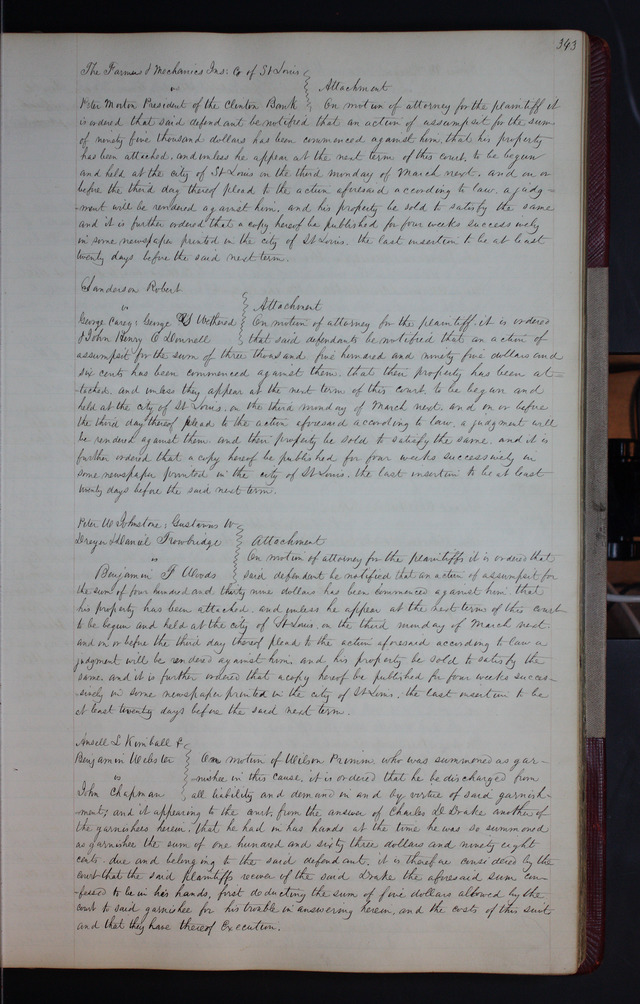 343
The Farmers & Mechanics Ins: Co of St Louis
vs
Attachment
Peter Morton President of the Clinton Bank
On motion of attorney for the plaintiff it
is ordered that said defendant be notified that an action of assumpsit for the sum
of ninety five thousand dollars has been commenced against him, that his property
has been attached, and unless he appear at the next term of this court, to be begun
and held at the city of St Louis on the third monday of March next, and on or
before the third day thereof plead to the action aforesaid according to law, a judg-
-ment will be rendered against him, and his property be sold to satisfy the same
and it is further ordered that a copy hereof be published for four weeks successively
in some newspaper printed in the city of St Louis, the last insertion to be at least
twenty days before the said next term.
Sanderson Robert
vs
Attachment
George Carey, George Wethered
On motion of attorney for the plaintiff, it is ordered
& John Henry O Donnell
that said defendants be notified that an action of
assumpsit for the sum of three thousand five hundred and ninety five dollars and
six cents has been commenced against them, that their property has been at-
-tached, and unless they appear at the next term of this court, to be begun and
held at the city of St Louis, on the third monday of March next, and on or before
the third day thereof plead to the action aforesaid according to law, a judgment will
be rendered against them and their property be sold to satisfy the same, and it is
further ordered that a copy hereof be published for four weeks successively in
some newspaper printed in the city of St Louis, the last insertion to be at least
twenty days before the said next term.
Peter W Johnstone, Gustavus W
Dreyer & Daniel Trowbridge
Attachment
vs
On motion of attorney for the plaintiffs it is ordered that
Benjamin F Woods
said defendant be notified that an action of assumpsit for
the sum of four hundred and thirty nine dollars has been commenced against him, that
his property has been attached, and unless he appear at the next terms of this court
to be begun and held at the city of St Louis, on the third monday of March next
and on or before the third day thereof plead to the action aforesaid according to law a
judgment will be rendered against him, and his property be sold to satisfy the
same, and it is further ordered that a copy hereof be published for four weeks succes-
-sively in some newspaper printed in the city of St Louis, the last insertion to be
at least twenty days before the said next term.
Ansell L Kimball &
Benjamin Webster
On motion of Wilson Primm who was summoned as gar-
vs
-nishee in this cause, it is ordered that he be discharged from
John Chapman
all liability and demand in and by virtue of said garnish-
-ment; and it appearing to the court, from the answer of Charles D Drake another of
the garnishees herein, that he had in his hands at the time he was so summoned
as garnishee the sum of one hundred and sixty three dollars and ninety eight
cents due and belonging to the said defendant, it is therefore considered by the
court that the said plaintiffs recover of the said Drake the aforesaid sum con-
-fessed to be in his hands, first deducting the sum of five dollars allowed by the
court to said garnishee for his trouble in answering herein, and the costs of this suit
and that they have thereof Execution.